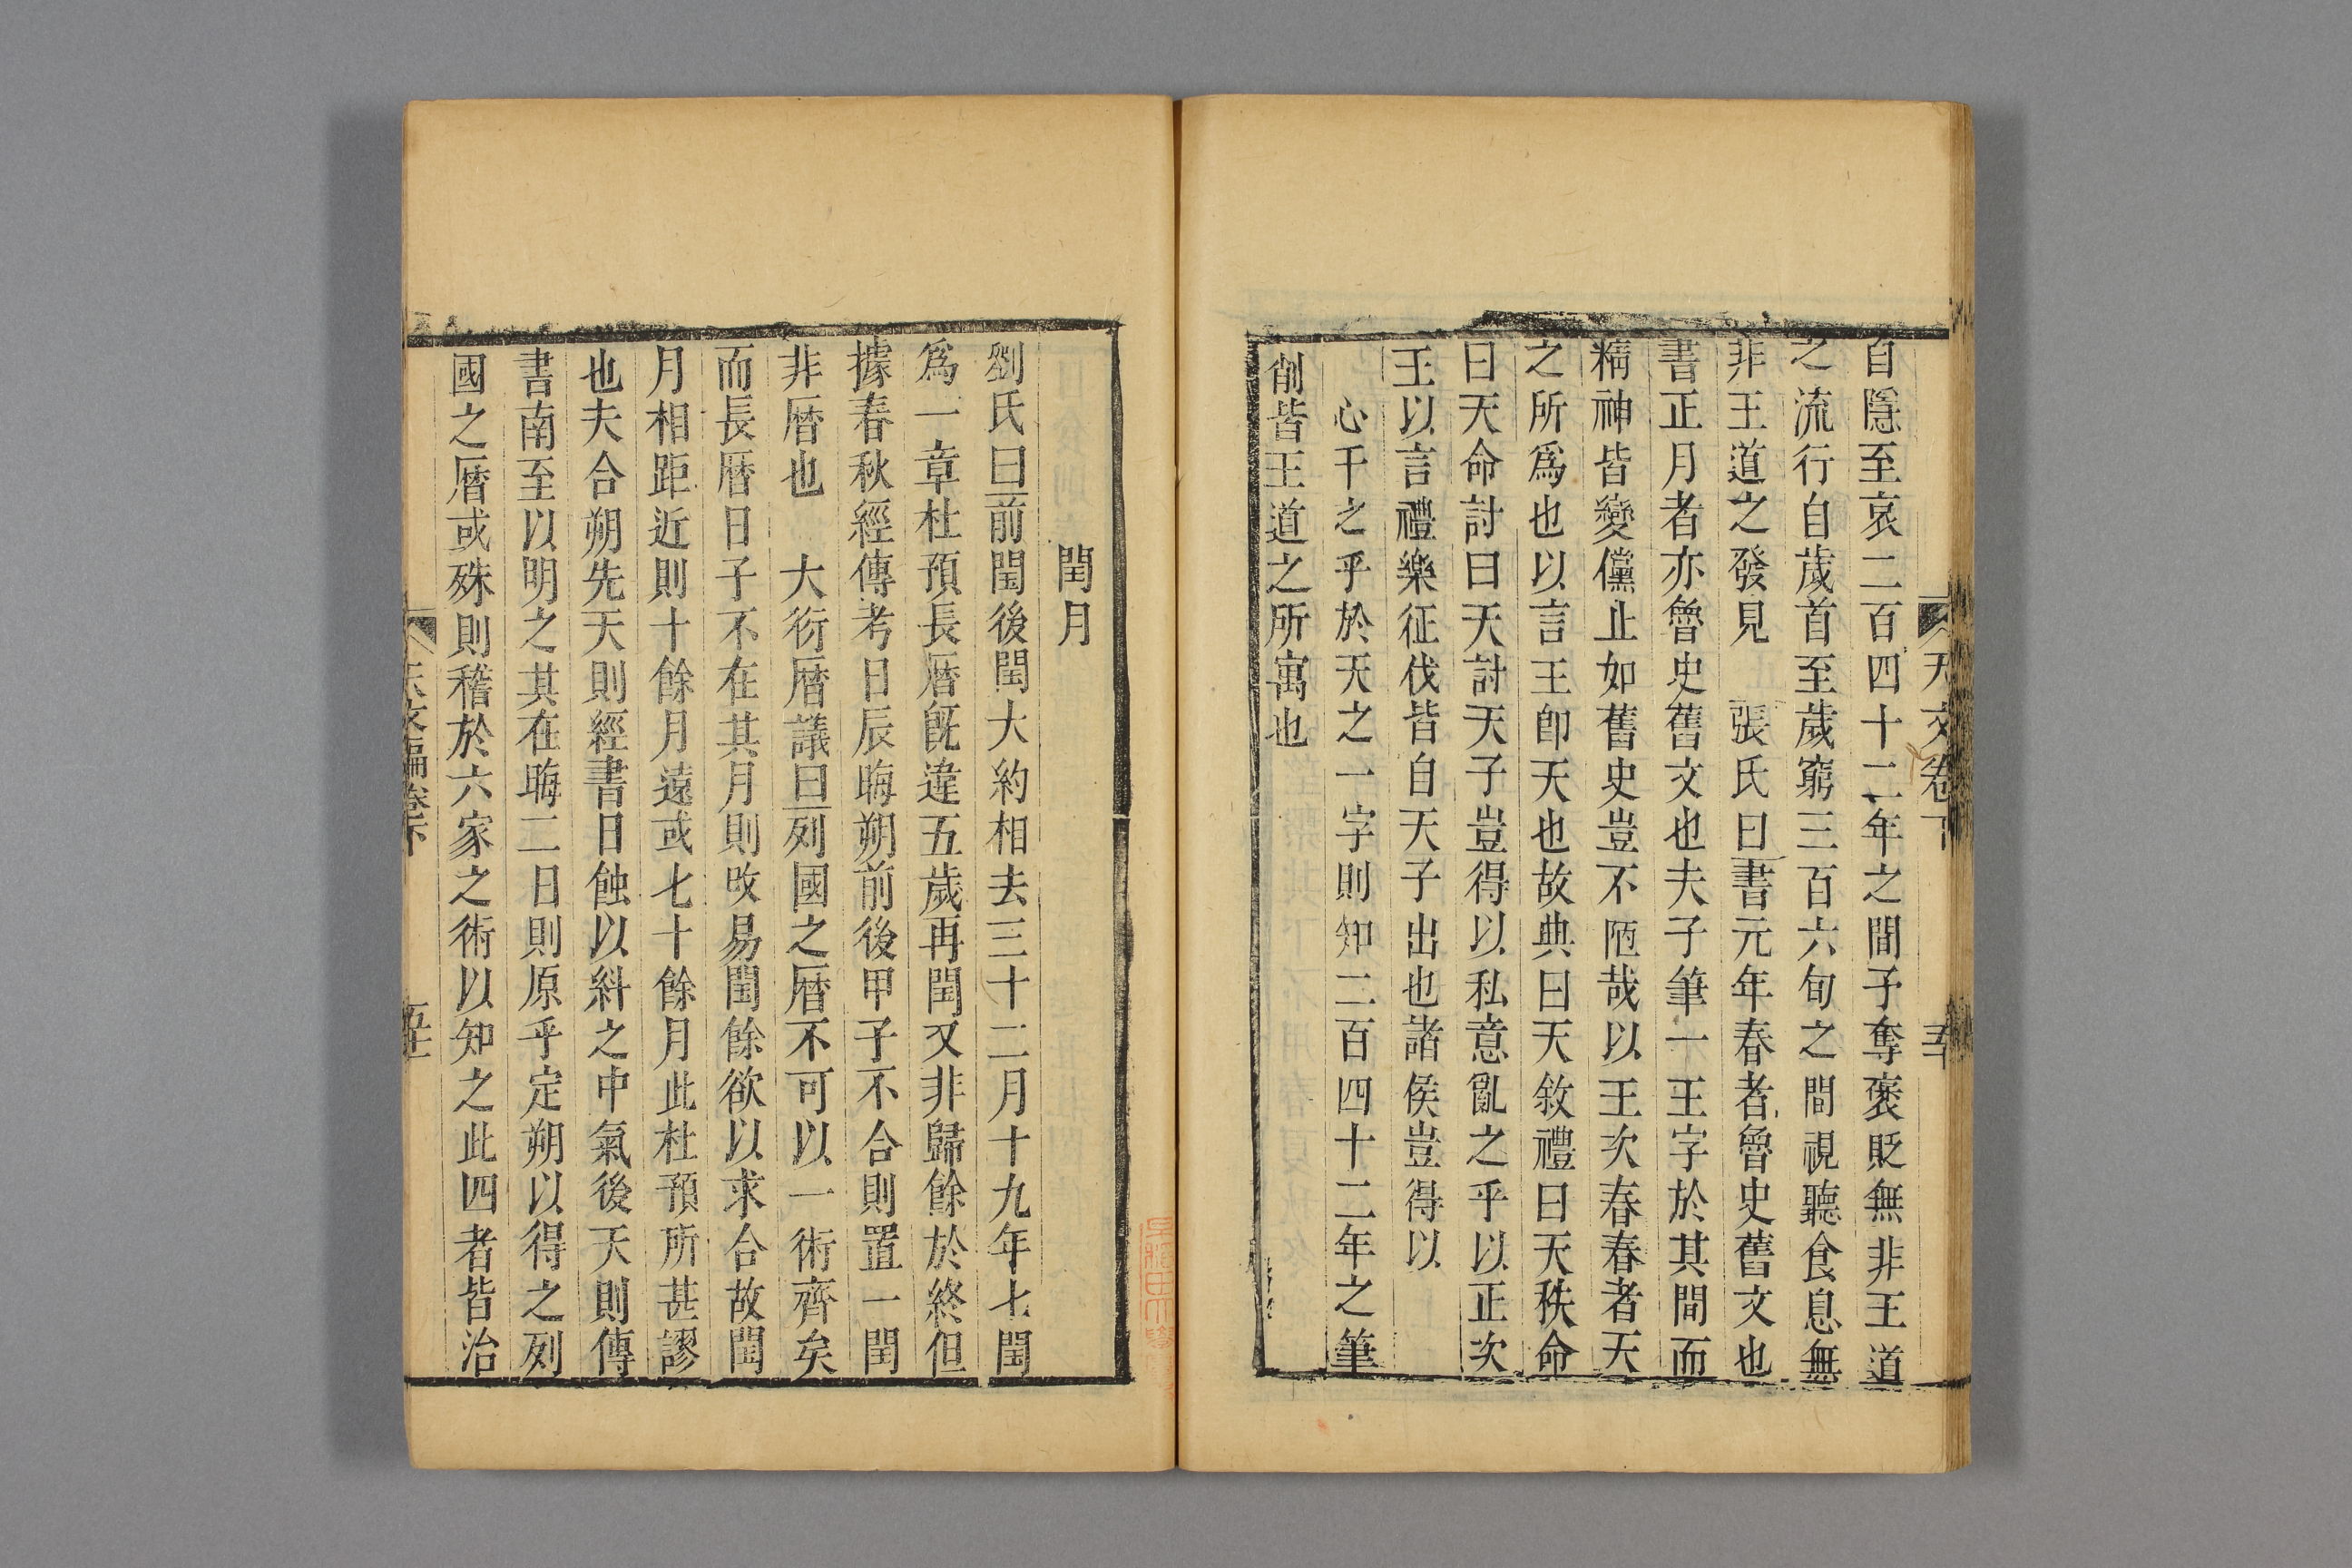 天文卷下
自隱至哀二百四十二年之間予奪褒貶無非王道
之流行自歲首至歲窮三百六旬之間視聽食息無
非王道之發見　張氏曰書元年春者魯史舊文也
書正月者亦魯史舊文也夫子筆一王字於其間而
精神皆變儻止如舊史豈不陋哉以王次春春者天
之所爲也以言王卽天也故典曰天敘禮曰天秩命
曰天命討曰天討天子豈得以私意亂之乎以正次
王以言禮樂征伐皆自天子出也諸侯豈得以
心干之乎於天之一字則知二百四十二年之筆
削皆王道之所寓也
閏月
劉氏曰前閏後閏大約相去三十二月十九年七閏
爲一章杜預長曆旣違五歲再閏又非歸餘於終但
據春秋經傳考日辰晦朔前後甲子不合則置一閏
非曆也　大衍曆議曰列國之曆不可以一術齊矣
而長曆日子不在其月則改易閏餘欲以求合故閏
月相距近則十餘月遠或七十餘月此杜預所甚謬
也夫合朔先天則經書日蝕以糾之中氣後天則傳
書南至以明之其在晦二日則原乎定朔以得之列
國之曆或殊則稽於六家之術以知之此四者皆治
天文編卷下